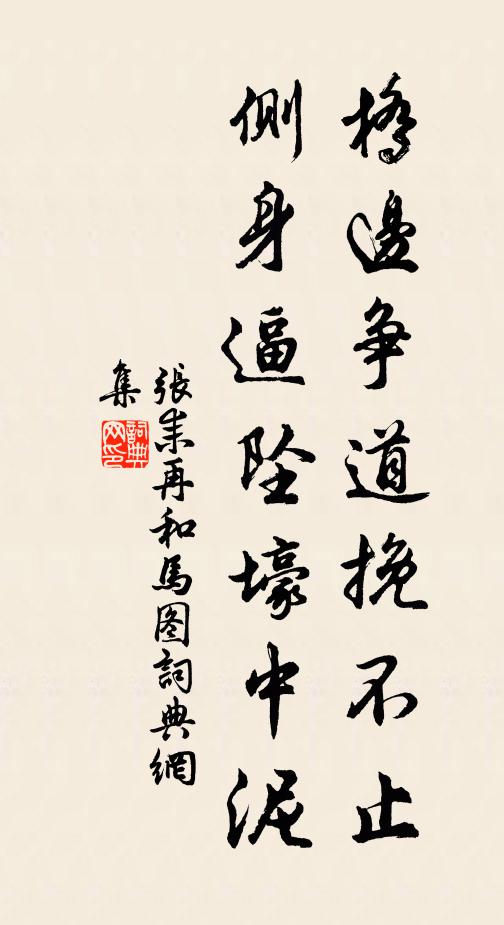 橋邊争道挽不止
側身逼墜壕中泥
張耒再和馬图詞典網
集
詞典网印